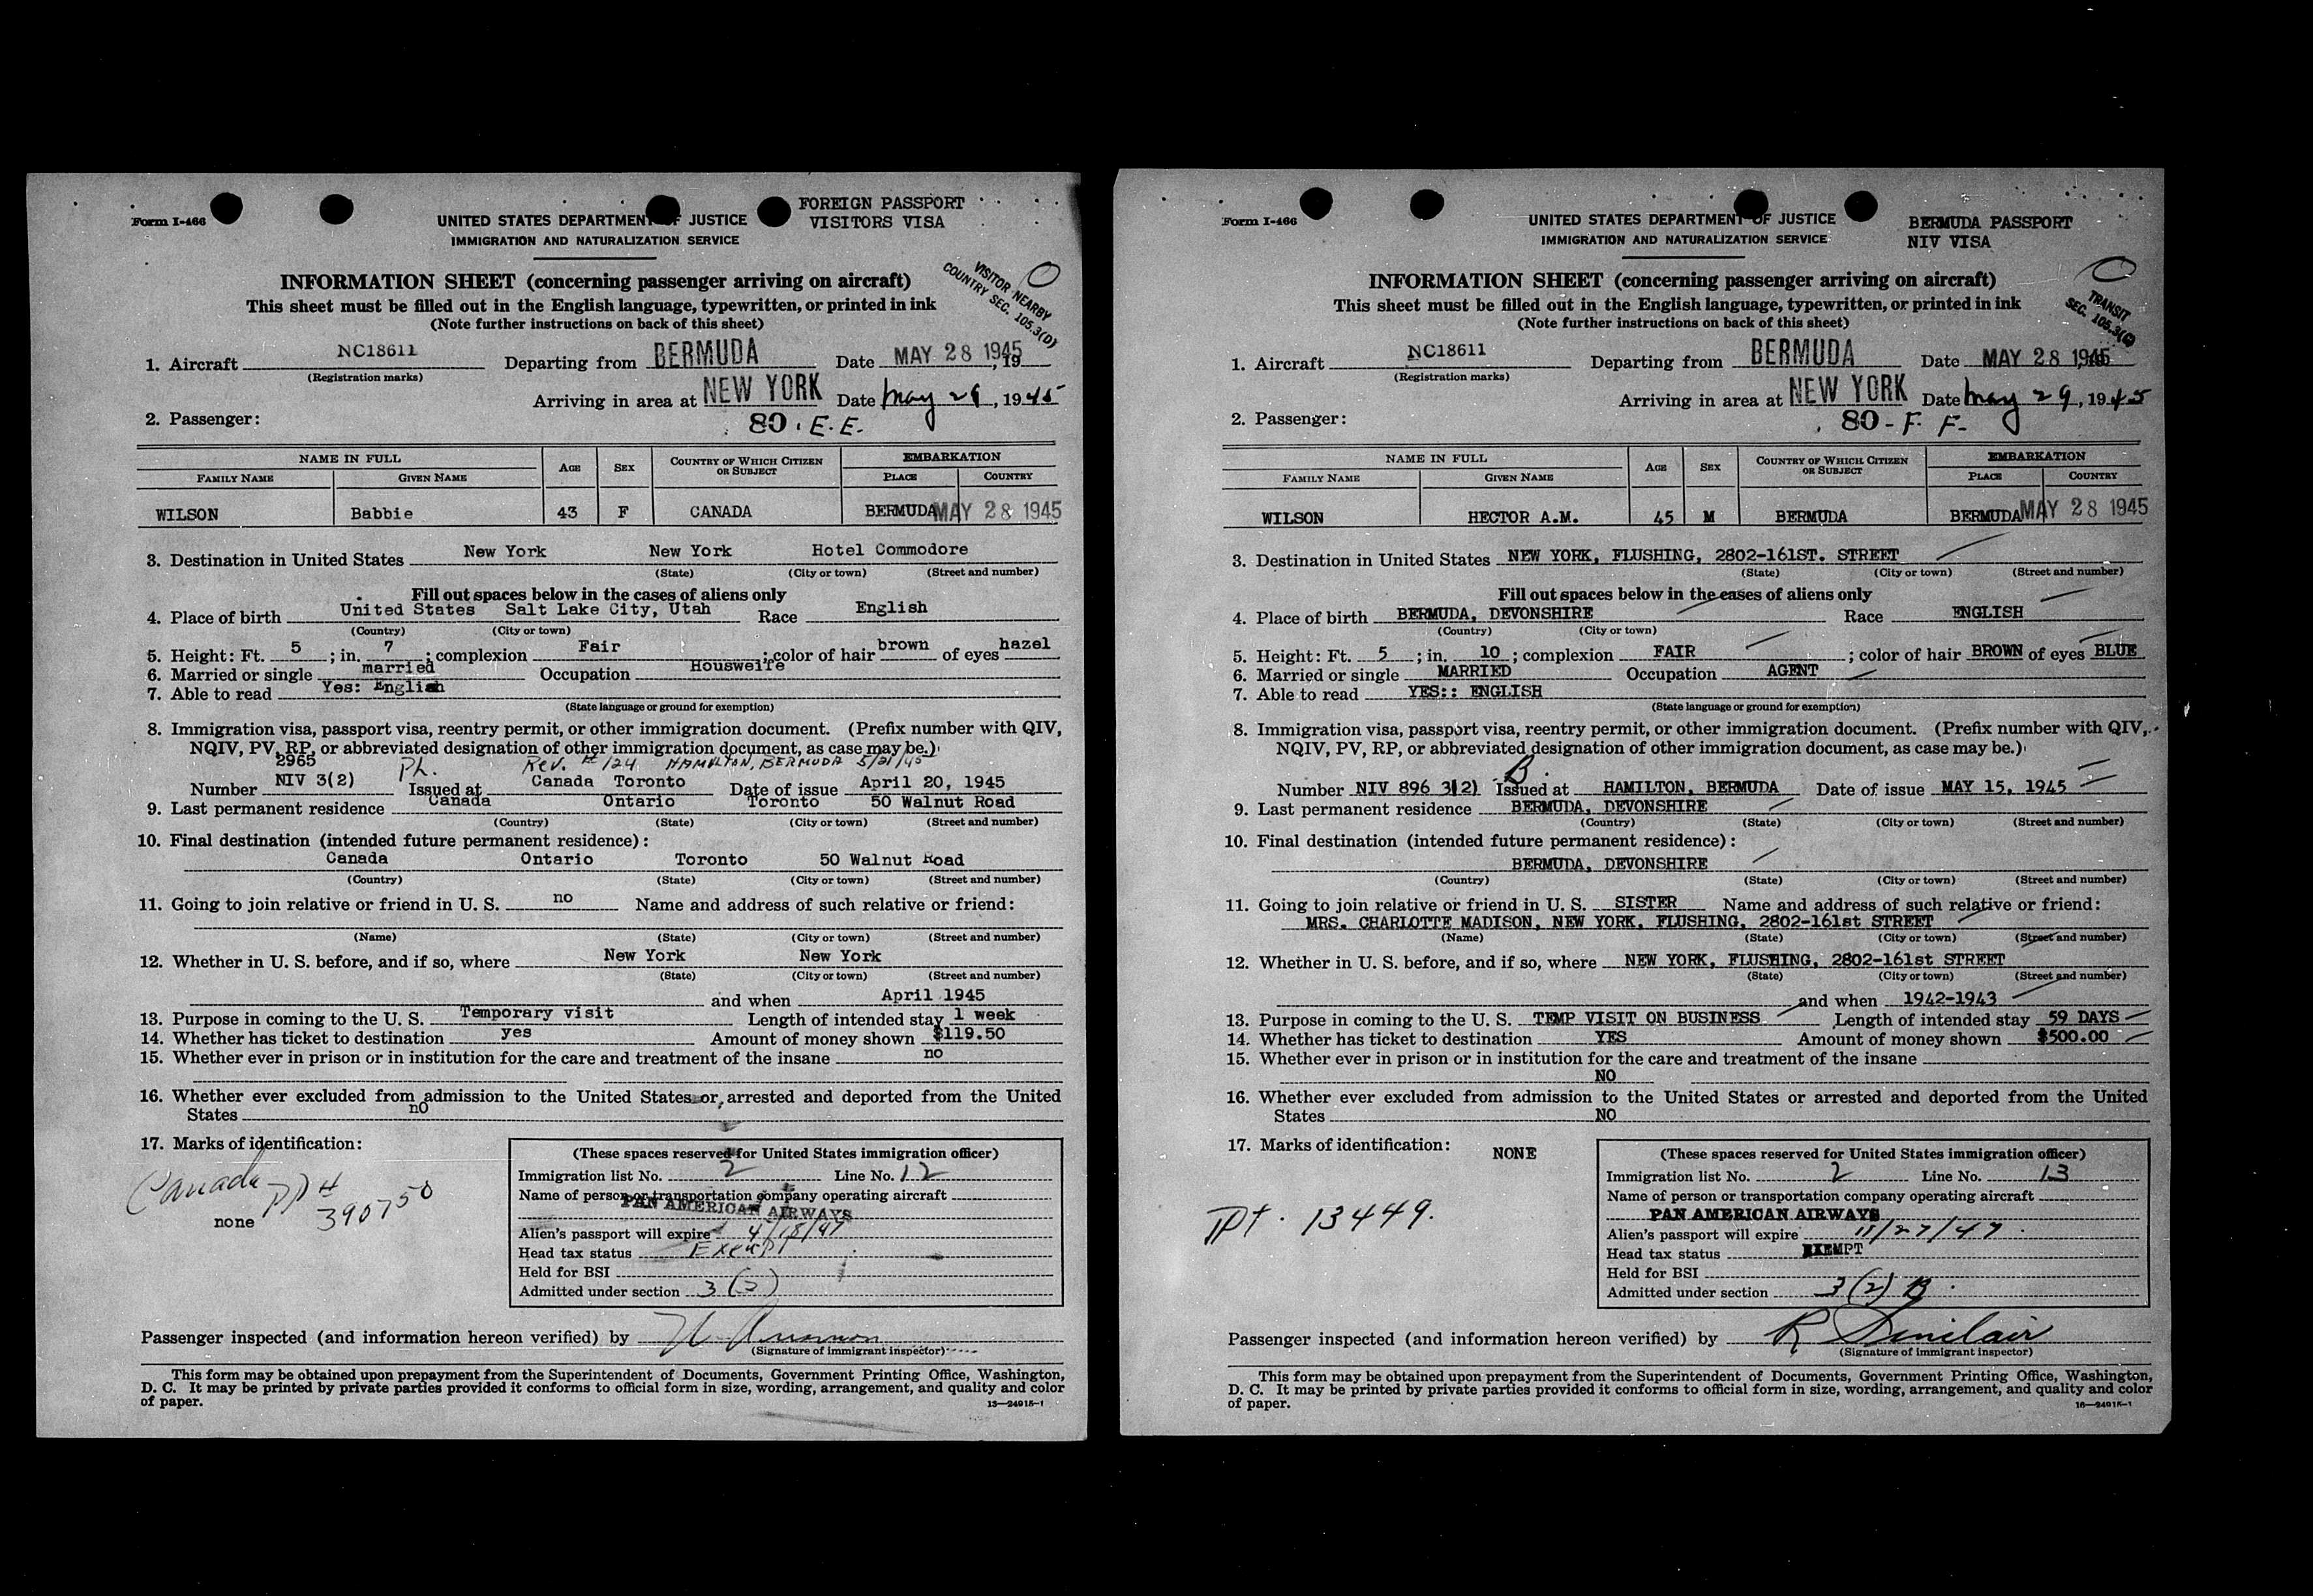 Form I-466
FOREIGN PASSPORT
VISITORS VISA
UNITED STATES DEPARTMENT OF JUSTICE
IMMIGRATION AND NATURALIZATION SERVICE
VISITOR NEARBY
COUNTRY SEC. 105.3(D)
INFORMATION SHEET (concerning passenger arriving on aircraft)
This sheet must be filled out in the English language, typewritten, or printed in ink
(Note further instructions on back of this sheet)
1. Aircraft NC18611 Departing from BERMUDA Date MAY 28 1945, 19
(Registration marks)
Arriving in area at NEW YORK Date May 29, 1945
2. Passenger: 80. E. E.
NAME IN FULL AGE SEX COUNTRY OF WHICH CITIZEN OR SUBJECT EMBARKATION
FAMILY NAME GIVEN NAME PLACE COUNTRY
WILSON Babbie 43 F CANADA BERMUDA MAY 28 1945
3. Destination in United States New York New York Hotel Commodore
(State) (City or town) (Street and number)
Fill out spaces below in the cases of aliens only
4. Place of birth United States Salt Lake City, Utah Race English
(Country) (City or town)
5. Height: Ft. 5; in. 7; complexion Fair; color of hair brown of eyes hazel
6. Married or single married Occupation Housweife
7. Able to read Yes: English
(State language or ground for exemption)
8. Immigration visa, passport visa, reentry permit, or other immigration document. (Prefix number with QIV,
NQIV, PV, RP, or abbreviated designation of other immigration document, as case may be.)
2965 Rev. # 124 HAMILTON, BERMUDA 5/21/45
Number NIV 3(2) Issued at Canada Toronto Date of issue April 20, 1945
9. Last permanent residence Canada Ontario Toronto 50 Walnut Road
(Country) (State) (City or town) (Street and number)
10. Final destination (intended future permanent residence):
Canada Ontario Toronto 50 Walnut Road
(Country) (State) (City or town) (Street and number)
11. Going to join relative or friend in U. S. no Name and address of such relative or friend:
(Name) (State) (City or town) (Street and number)
12. Whether in U. S. before, and if so, where New York New York
(State) (City or town) (Street and number)
and when April 1945
13. Purpose in coming to the U. S. Temporary visit Length of intended stay 1 week
14. Whether has ticket to destination yes Amount of money shown $119.50
15. Whether ever in prison or in institution for the care and treatment of the insane no
16. Whether ever excluded from admission to the United States or arrested and deported from the United
States no
17. Marks of identification:
Canada PP # 390750
none
(These spaces reserved for United States immigration officer)
Immigration list No. 2 Line No. 12
Name of person or transportation company operating aircraft
PAN AMERICAN AIRWAYS
Alien's passport will expire 4/18/47
Head tax status Exempt
Held for BSI
Admitted under section 3(2)
Passenger inspected (and information hereon verified) by
(Signature of immigrant inspector)
This form may be obtained upon prepayment from the Superintendent of Documents, Government Printing Office, Washington,
D. C. It may be printed by private parties provided it conforms to official form in size, wording, arrangement, and quality and color
of paper. 13—24915-1
Form I-466
BERMUDA PASSPORT
NIV VISA
UNITED STATES DEPARTMENT OF JUSTICE
IMMIGRATION AND NATURALIZATION SERVICE
TRANSIT
SEC. 105.3(C)
INFORMATION SHEET (concerning passenger arriving on aircraft)
This sheet must be filled out in the English language, typewritten, or printed in ink
(Note further instructions on back of this sheet)
1. Aircraft NC18611 Departing from BERMUDA Date MAY 28 1945
(Registration marks)
Arriving in area at NEW YORK Date May 29, 1945
2. Passenger: 80 - F. F.
NAME IN FULL AGE SEX COUNTRY OF WHICH CITIZEN OR SUBJECT EMBARKATION
FAMILY NAME GIVEN NAME PLACE COUNTRY
WILSON HECTOR A.M. 45 M BERMUDA BERMUDA MAY 28 1945
3. Destination in United States NEW YORK, FLUSHING, 2802-161ST. STREET
(State) (City or town) (Street and number)
Fill out spaces below in the cases of aliens only
4. Place of birth BERMUDA, DEVONSHIRE Race ENGLISH
(Country) (City or town)
5. Height: Ft. 5; in. 10; complexion FAIR; color of hair BROWN of eyes BLUE
6. Married or single MARRIED Occupation AGENT
7. Able to read YES:: ENGLISH
(State language or ground for exemption)
8. Immigration visa, passport visa, reentry permit, or other immigration document. (Prefix number with QIV,
NQIV, PV, RP, or abbreviated designation of other immigration document, as case may be.)
Number NIV 896 3(2) B Issued at HAMILTON, BERMUDA Date of issue MAY 15, 1945
9. Last permanent residence BERMUDA, DEVONSHIRE
(Country) (State) (City or town) (Street and number)
10. Final destination (intended future permanent residence):
BERMUDA, DEVONSHIRE
(Country) (State) (City or town) (Street and number)
11. Going to join relative or friend in U. S. SISTER Name and address of such relative or friend:
MRS. CHARLOTTE MADISON, NEW YORK, FLUSHING, 2802-161st STREET
(Name) (State) (City or town) (Street and number)
12. Whether in U. S. before, and if so, where NEW YORK, FLUSHING, 2802-161st STREET
(State) (City or town) (Street and number)
and when 1942-1943
13. Purpose in coming to the U. S. TEMP VISIT ON BUSINESS Length of intended stay 59 DAYS
14. Whether has ticket to destination YES Amount of money shown $500.00
15. Whether ever in prison or in institution for the care and treatment of the insane
NO
16. Whether ever excluded from admission to the United States or arrested and deported from the United
States NO
17. Marks of identification: NONE
PPt. 13449.
(These spaces reserved for United States immigration officer)
Immigration list No. 2 Line No. 13
Name of person or transportation company operating aircraft
PAN AMERICAN AIRWAYS
Alien's passport will expire 11/27/47
Head tax status EXEMPT
Held for BSI
Admitted under section 3(2) B
Passenger inspected (and information hereon verified) by R Sinclair
(Signature of immigrant inspector)
This form may be obtained upon prepayment from the Superintendent of Documents, Government Printing Office, Washington,
D. C. It may be printed by private parties provided it conforms to official form in size, wording, arrangement, and quality and color
of paper. 16—24915-1